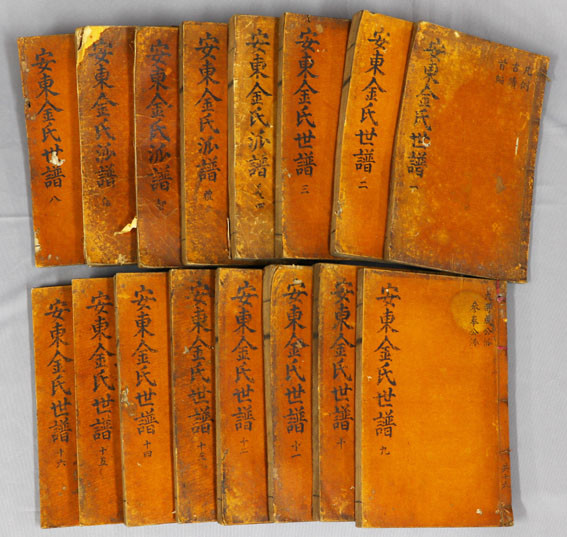 凡例
安東金氏世譜 一
安東金氏世譜 二
安東金氏世譜 三
安東金氏派譜 四
安東金氏派譜
安東金氏派譜
安東金氏派譜
安東金氏世譜 八
參奉公派
安東金氏世譜 九
安東金氏世譜 十
安東金氏世譜 十一
安東金氏世譜 十二
安東金氏世譜 十三
安東金氏世譜 十四
安東金氏世譜 十五
安東金氏世譜 十六